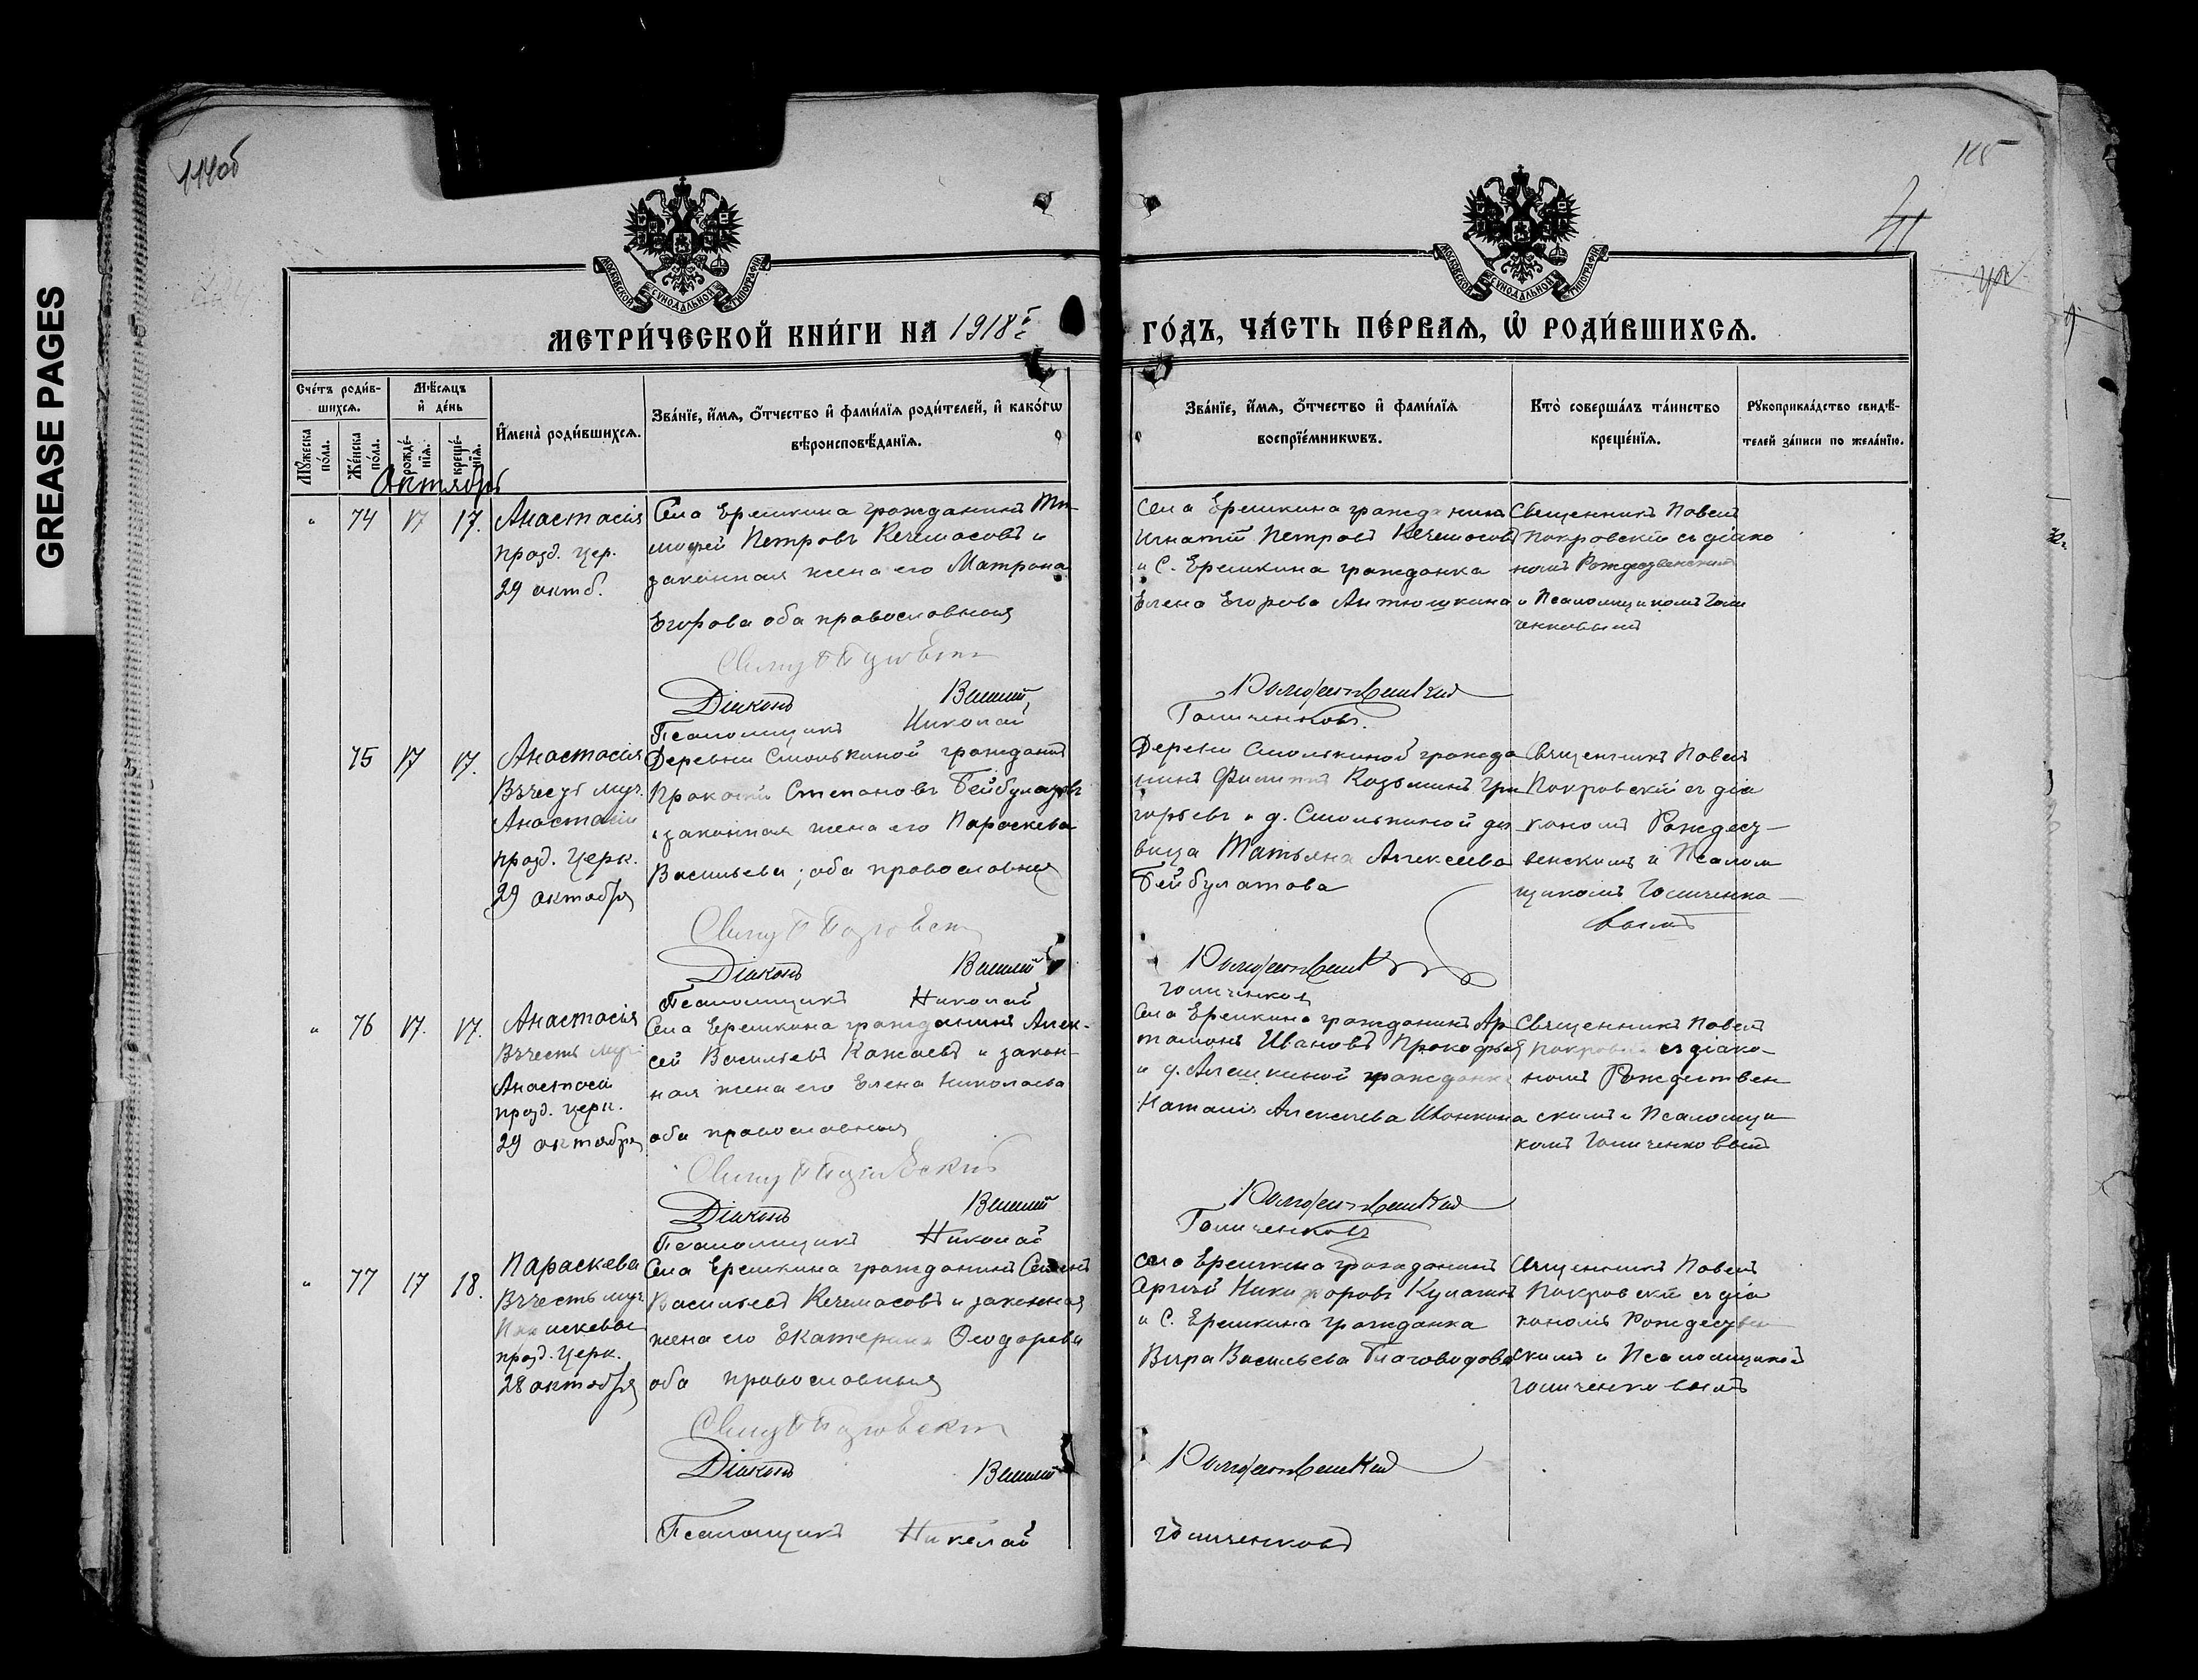 GREASE PAGES
114об
115
41
МОСКОВСКОЙ СѴНОДАЛЬНОЙ ТИПОГРАФІИ
МОСКОВСКОЙ СѴНОДАЛЬНОЙ ТИПОГРАФІИ
МЕТРИ́ЧЕСКОЙ КНИ́ГИ НА 1918 г
ГО́ДЪ, ЧА́СТЬ ПЕ́РВАѦ, Ѽ РОДИ́ВШИХСѦ.
Сче́тъ роди́в-
шихсѧ.
Мꙋ́жеска по́ла.
Же́нска по́ла.
Мѣ́сѧцъ
и҆ де́нь
рожде́-
нїѧ.
креще́-
нїѧ.
И҆мена̀ роди́вшихсѧ.
Зва́нїе, и҆́мѧ, ѻ҆́тчество и҆ фами́лїѧ роди́телей, и҆ како́гѡ
вѣроисповѣ́данїѧ.
Зва́нїе, и҆́мѧ, ѻ҆́тчество и҆ фами́лїѧ
воспрїе́мникѡвъ.
Кто̀ соверша́лъ та́инство
креще́нїѧ.
Рꙋкоприкла́дство свидѣ́-
телей за́писи по жела́нїю.
Октябрь
" 74 17 17.
Анастасія
празд. цер.
29 октб.
Села Ерешкина гражданинъ Ти-
мофей Петровъ Кечемасовъ и
законная жена его Матрона
Егорова оба православныя
Села Ерешкина гражданинъ
Игнатій Петровъ Кечемасовъ
и С. Ерешкина гражданка
Елена Егорова Антюшкина
Священникъ Павелъ
Покровскій съ діако
номъ Рождественскимъ
и Псаломщикомъ Голи
ченковымъ
Діаконъ Василій
Псаломщикъ Николай
Голиченковъ.
75 17 17.
Анастасія
Въ честь муч.
Анастасіи
празд. Церк.
29 октября
Деревни Смолькиной гражданинъ
Прокопій Степановъ Бейбулатовъ
и законная жена его Параскева
Васильева; оба православныя
Деревни Смолькиной гражда
нинъ Филиппъ Козьминъ Гри
горьевъ и д. Смолькиной дѣ
вица Татьяна Алексеева
Бейбулатова
Священникъ Павелъ
Покровскій съ діа
кономъ Рождест-
венскимъ и Псалом
щикомъ Голиченко-
вымъ
Діаконъ Василій
Псаломщикъ Николай
Голиченковъ
" 76 17. 17.
Анастасія
Въ честь муч.
Анастасіи
празд. церк.
29 октября
Села Ерешкина гражданинъ Алек-
сей Васильевъ Кажаевъ и закон-
ная жена его Елена Николаева
оба православныя
Села Ерешкина гражданинъ Ар
тамонъ Ивановъ Прокофьевъ
и д. Алешкиной гражданка
Наталія Алексѣева Ивонкина
Священникъ Павелъ
Покровскій съ діако-
номъ Рождествен
скимъ и Псаломщи-
комъ Голиченковымъ
Діаконъ Василій
Псаломщикъ Николай
Голиченковъ
" 77 17 18.
Параскева
Въ честь муч.
Параскевы
празд. Церк.
28 октября
Села Ерешкина гражданинъ Семенъ
Васильевъ Кечемасовъ и законная
жена его Екатерина Ѳеодорова
оба православныя
Села Ерешкина гражданинъ
Сергѣй Никифоровъ Кулагинъ
и С. Ерешкина гражданка
Вѣра Васильева Благовидова
Священникъ Павелъ
Покровскій съ діа
кономъ Рождествен
скимъ и Псаломщикомъ
Голиченковымъ
Діаконъ Василій
Псаломщикъ Николай
Голиченковъ